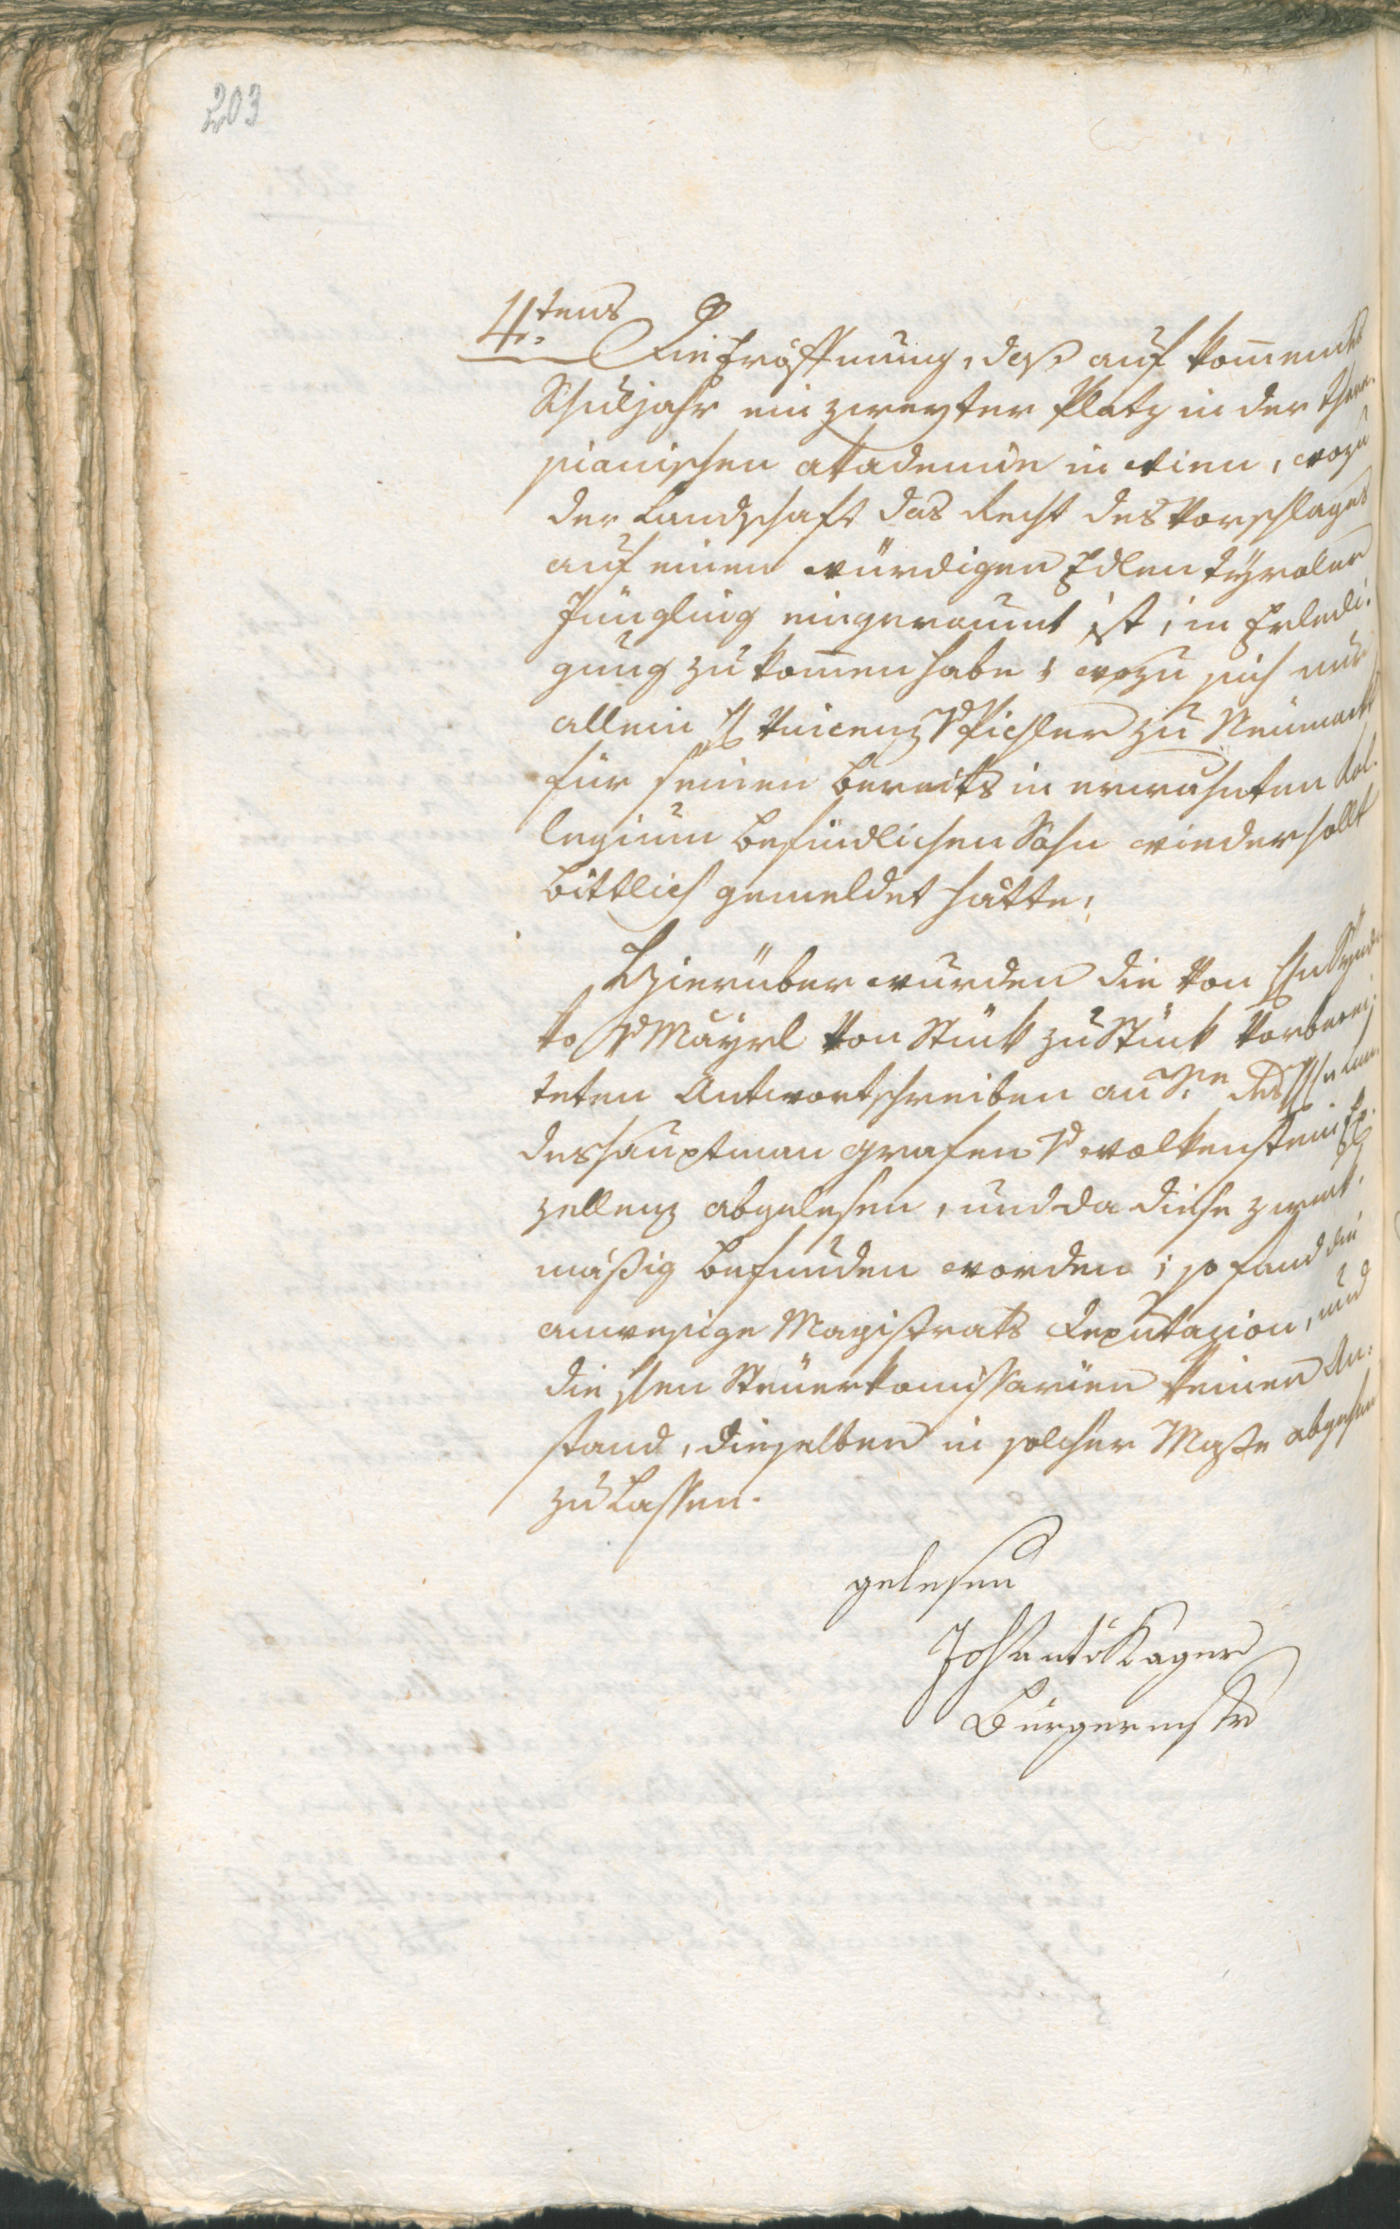 203
4.tens
Die Eröffnung, daß auf kom̄endes
Schuljahr ein zweyter Platz in der There¬
sianischen Akademie in Wien, wozu
der Landschaft das Recht des Vorschlages
auf einen würdigen Edlen Tyroler
Jüngling eingeraumt ist, in Erledi¬
gung zu kom̄en habe, wozu sich nur
allein H Vincenz v Pichler zu Neumarkt
für seinen bereits in erwähnten Kol¬
legium befindlichen Sohn wiederhollt
bittlich gemeldet hätte;
Hierüber wurden die von Hn Syndi
ko v Mayrl von Stück zu Stück vorberei¬
teten Antwortschreiben an Sr. des Hn Lan¬
deshauptman Grafen v Wolkenstein Ex¬
zellenz abgelesen, und da diese zweck¬
mäßig befunden worden; so fand die
anwesige Magistrats Deputazion, und
die Hen Steuerkomissarien keinen An¬
stand, dieselben in solcher Maße abgehen
zu lassen.
gelesen
Joh Kager
Bürgermstr